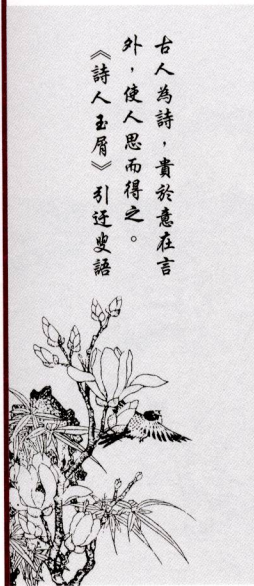 古人為詩，貴於意在言
外，使人思而得之。
《詩人玉屑》引迂叟語